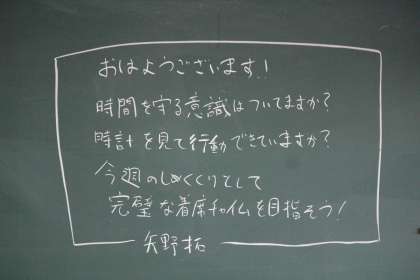 おはようございます!
時間を守る意識はついてますか?
時計を見て行動できていますか?
今週のしめくくりとして
完璧な着席チャイムを目指そう!
矢野拓